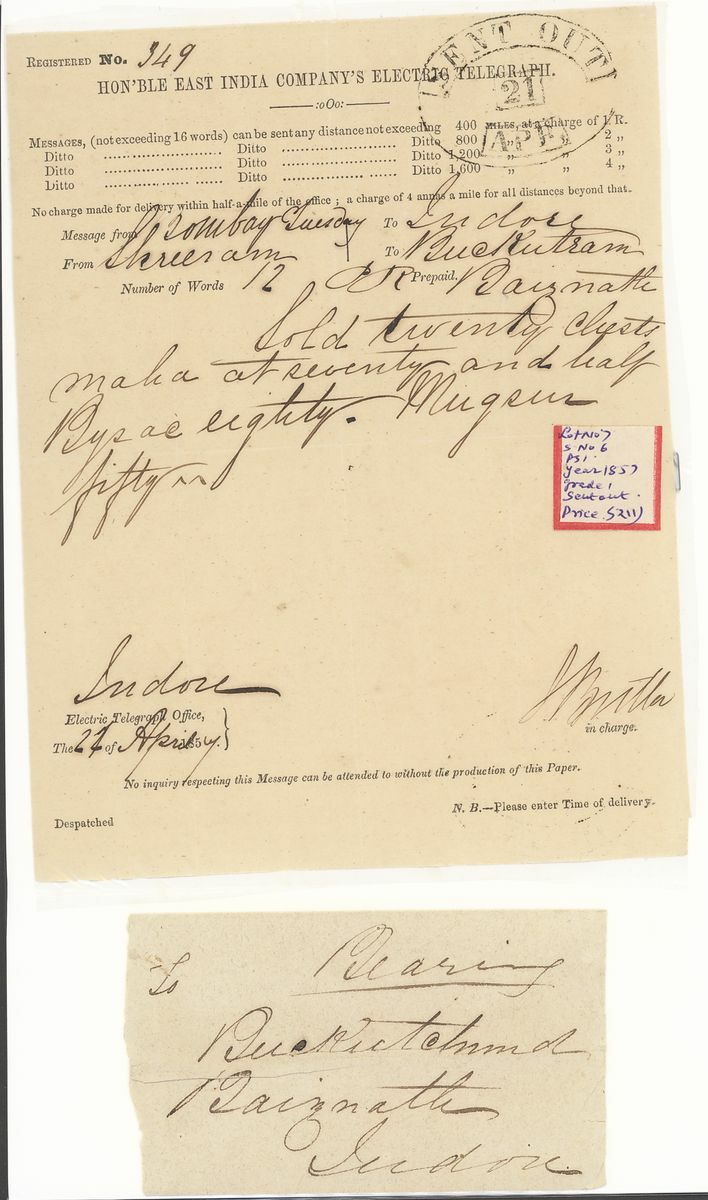 REGISTERED No. 349
SENT OUT
21
APR
HON'BLE EAST INDIA COMPANY'S ELECTRIC TELEGRAPH.
—:oOo:—
MESSAGES, (not exceeding 16 words) can be sent any distance not exceeding 400 MILES, at a charge of 1 R.
Ditto .................... Ditto .................... Ditto 800 „ „ 2 „
Ditto .................... Ditto .................... Ditto 1,200 „ „ 3 „
Ditto .................... Ditto .................... Ditto 1,600 „ „ 4 „
No charge made for delivery within half-a-mile of the office ; a charge of 4 annas a mile for all distances beyond that.
Message from Bombay Tuesday To Indore
From Shreeram To Buckutram
Number of Words 12 Prepaid. Baiznath
Sold twenty chests
maha at seventy and half
Bysac eighty. Mugsur
fifty
Lot No 7
S No 6
PS1
Year 1857
grade 1
Sent out.
Price 5211)
Indore
Electric Telegraph Office,
The 21 of April 1857.
in charge.
No inquiry respecting this Message can be attended to without the production of this Paper.
N. B.—Please enter Time of delivery.
Despatched
Bearing
To
Buckutchund
Baiznath
Indore